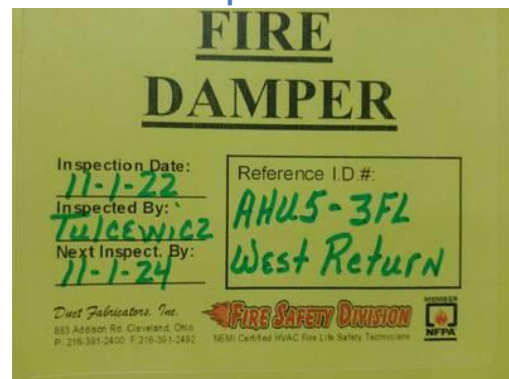 FIRE
DAMPER
Inspection Date:
11-1-22
Inspected By:
TulcewicZ
Next Inspect. By:
11-1-24
Reference I.D.#:
AHU5-3FL
West Return
Duct Fabricators, Inc.
883 Addison Rd. Cleveland, Ohio
P: 216-391-2400 F: 216-391-2492
FIRE SAFETY DIVISION
NEMI Certified HVAC Fire Life Safety Technicians
MEMBER
NFPA